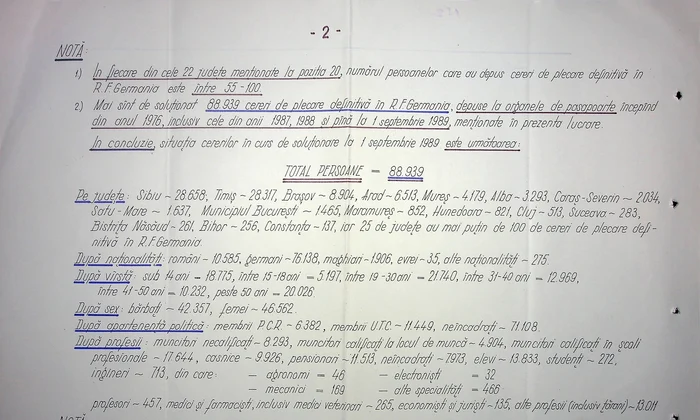 - 2 -
NOTĂ:
1) În fiecare din cele 22 județe menționate la poziția 20, numărul persoanelor care au depus cereri de plecare definitivă în
R.F.Germania este între 55-100.
2) Mai sînt de soluționat 88.939 cereri de plecare definitivă în R.F.Germania, depuse la organele de pașapoarte începînd
din anul 1976, inclusiv cele din anii 1987, 1988 și pînă la 1 septembrie 1989, menționate în prezenta lucrare.
În concluzie, situația cererilor în curs de soluționare la 1 septembrie 1989 este următoarea:
TOTAL PERSOANE = 88.939
Pe județe: Sibiu ~ 28.658, Timiș ~ 28.317, Brașov ~ 8.904, Arad ~ 6.513, Mureș ~ 4.179, Alba ~ 3.293, Caraș-Severin ~ 2.034,
Satu-Mare ~ 1.637, Municipiul București ~ 1.465, Maramureș ~ 852, Hunedoara ~ 821, Cluj ~ 513, Suceava ~ 283,
Bistrița Năsăud ~ 261, Bihor ~ 256, Constanța ~ 137, iar 25 de județe au mai puțin de 100 de cereri de plecare defi-
nitivă în R.F.Germania.
După naționalități: români ~ 10.585, germani ~ 76.138, maghiari ~ 1.906, evrei ~ 35, alte naționalități ~ 275.
După vîrstă: sub 14 ani = 18.775, între 15-18 ani = 5.197, între 19-30 ani = 21.740, între 31-40 ani = 12.969,
între 41-50 ani = 10.232, peste 50 ani = 20.026.
După sex: bărbați ~ 42.357, femei ~ 46.562.
După apartenență politică: membrii P.C.R. ~ 6.382, membrii U.T.C. ~ 11.449, neîncadrați ~ 71.108.
După profesii: muncitori necalificați ~ 8.293, muncitori calificați la locul de muncă ~ 4.904, muncitori calificați în școli
profesionale ~ 17.644, casnice ~ 9.926, pensionari ~ 11.513, neîncadrați ~ 7973, elevi ~ 13.833, studenți ~ 272,
ingineri ~ 713, din care: - agronomi = 46 - electroniști = 32
- mecanici = 169 - alte specialități = 466
profesori ~ 457, medici și farmaciști, inclusiv medici veterinari ~ 265, economiști și juriști ~ 135, alte profesii (inclusiv țărani) ~ 13.011